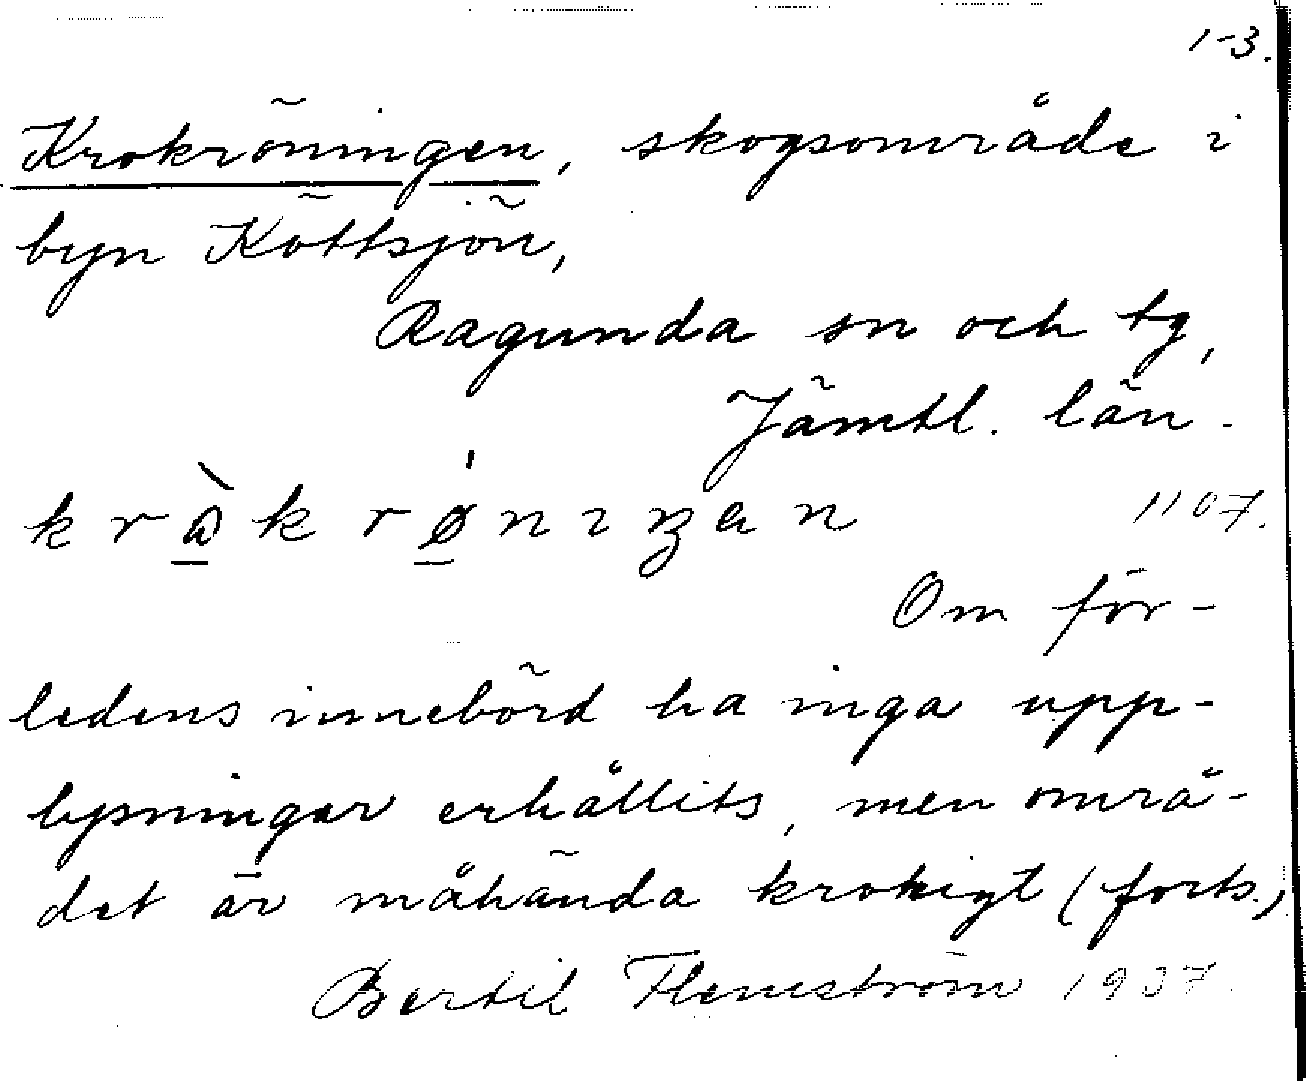 1-3.
Krokröningen, skogsområde i
byn Köttsjön,
Ragunda sn och tg,
Jämtl. län.
1107.
Om för-
ledens innebörd ha inga upp-
lysningar erhållits, men områ-
det är måhända krokigt (forts.)
Bertil Flemström 1937.